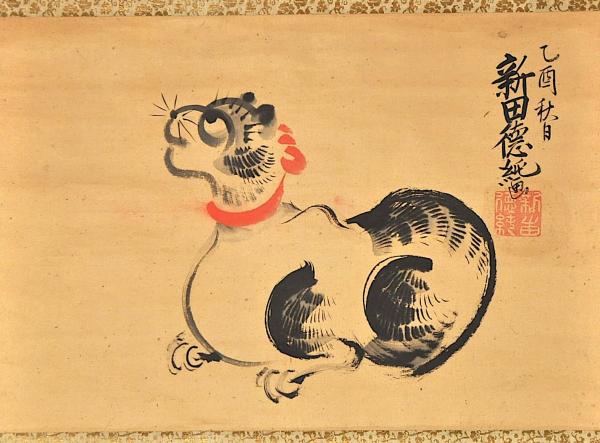 乙酉秋日
新田德純画
新田
德純